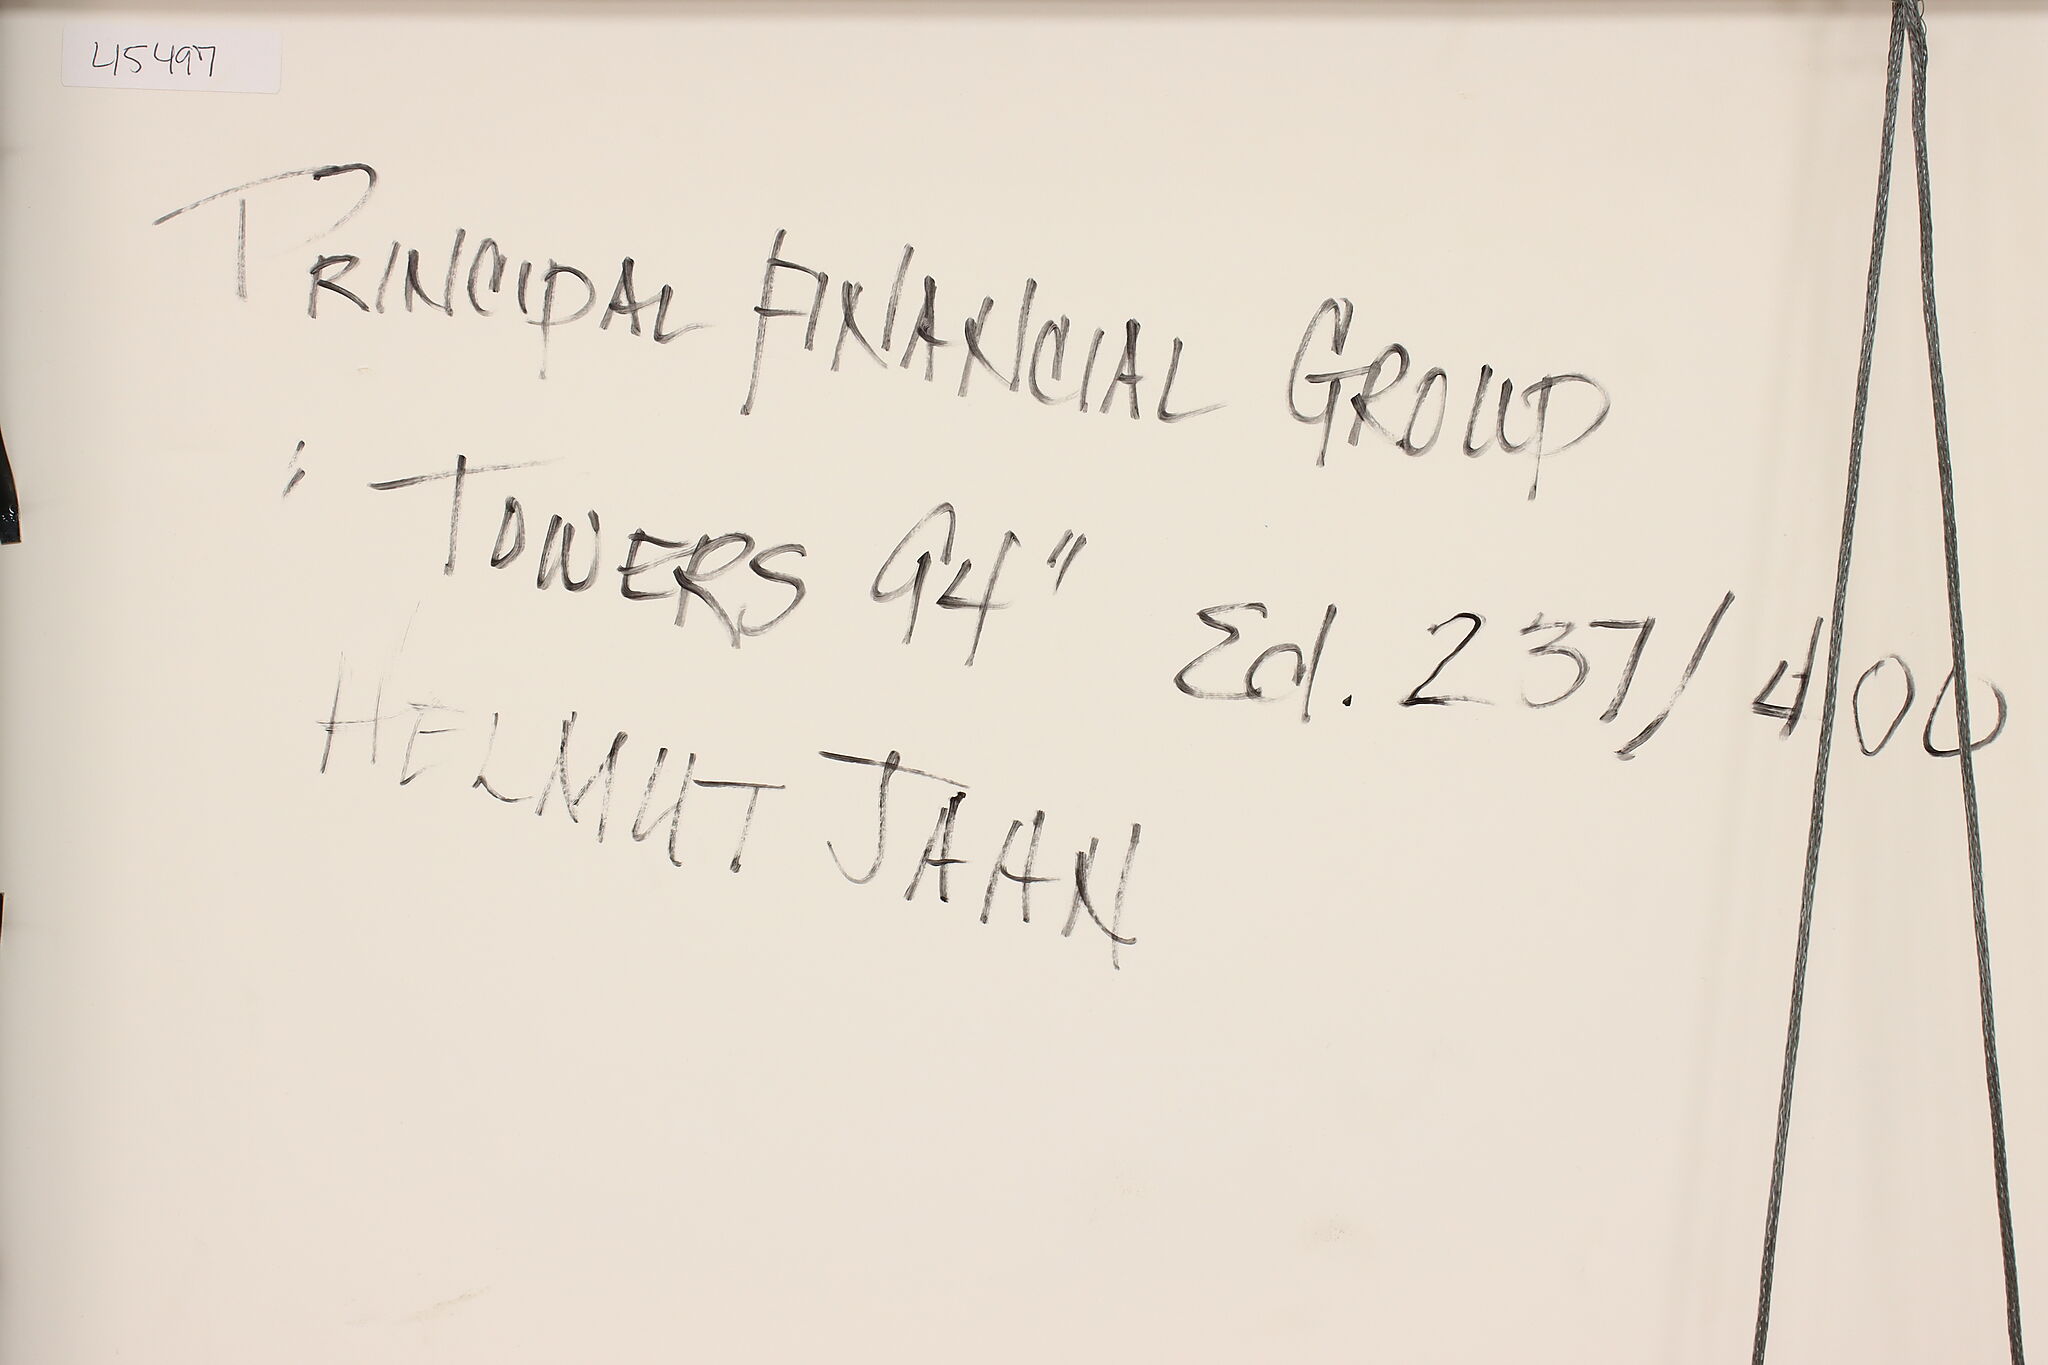 45497
PRINCIPAL FINANCIAL GROUP
"TOWERS 94" Ed. 237/400
HELMUT JAHN